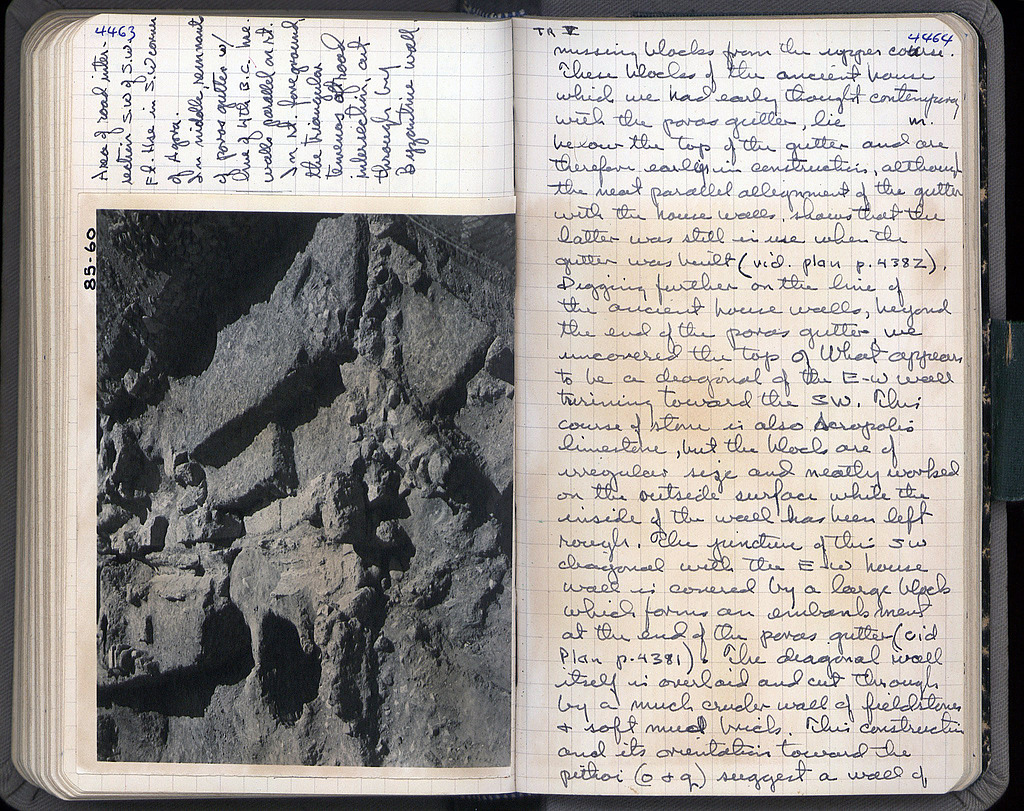 4463
Area of road inter-
section S.W. of S.W.
Ft. Hse in S.W. corner
of Agora.
In middle, remnant
of poros gutter w/
line of 4th B.C. hse.
walls parallel on rt.
In rt. foreground
the triangular
temenos at road
intersection, cut
through by
Byzantine wall
85-60
TR V
4464
missing blocks from the upper course.
These blocks of the ancient house
which we had early thought contemporary
with the poros gutter, lie m.
below the top of the gutter and are
therefore earlier in construction, although
the neat parallel allignment of the gutter
with the house walls, shows that the
latter was still in use when the
gutter was built (vid. plan p. 4382).
Digging further on the line of
the ancient house walls, beyond
the end of the poros gutter, we
uncovered the top of what appears
to be a deagonal of the E-W wall
turining toward the SW. This
course of stone is also Acropolis
limestone, but the blocks are of
irregular size and neatly worked
on the outside surface while the
inside of the wall has been left
rough. The juncture of this SW
diagonal with the E-W house
wall is covered by a large block
which forms an embankment
at the end of the poros gutter (vid
Plan p. 4381). The deagonal wall
itself is overlaid and cut through
by a much cruder wall of fieldstones
+ soft mud brick. This construction
and its orientation toward the
pithoi (o + q) suggest a wall of